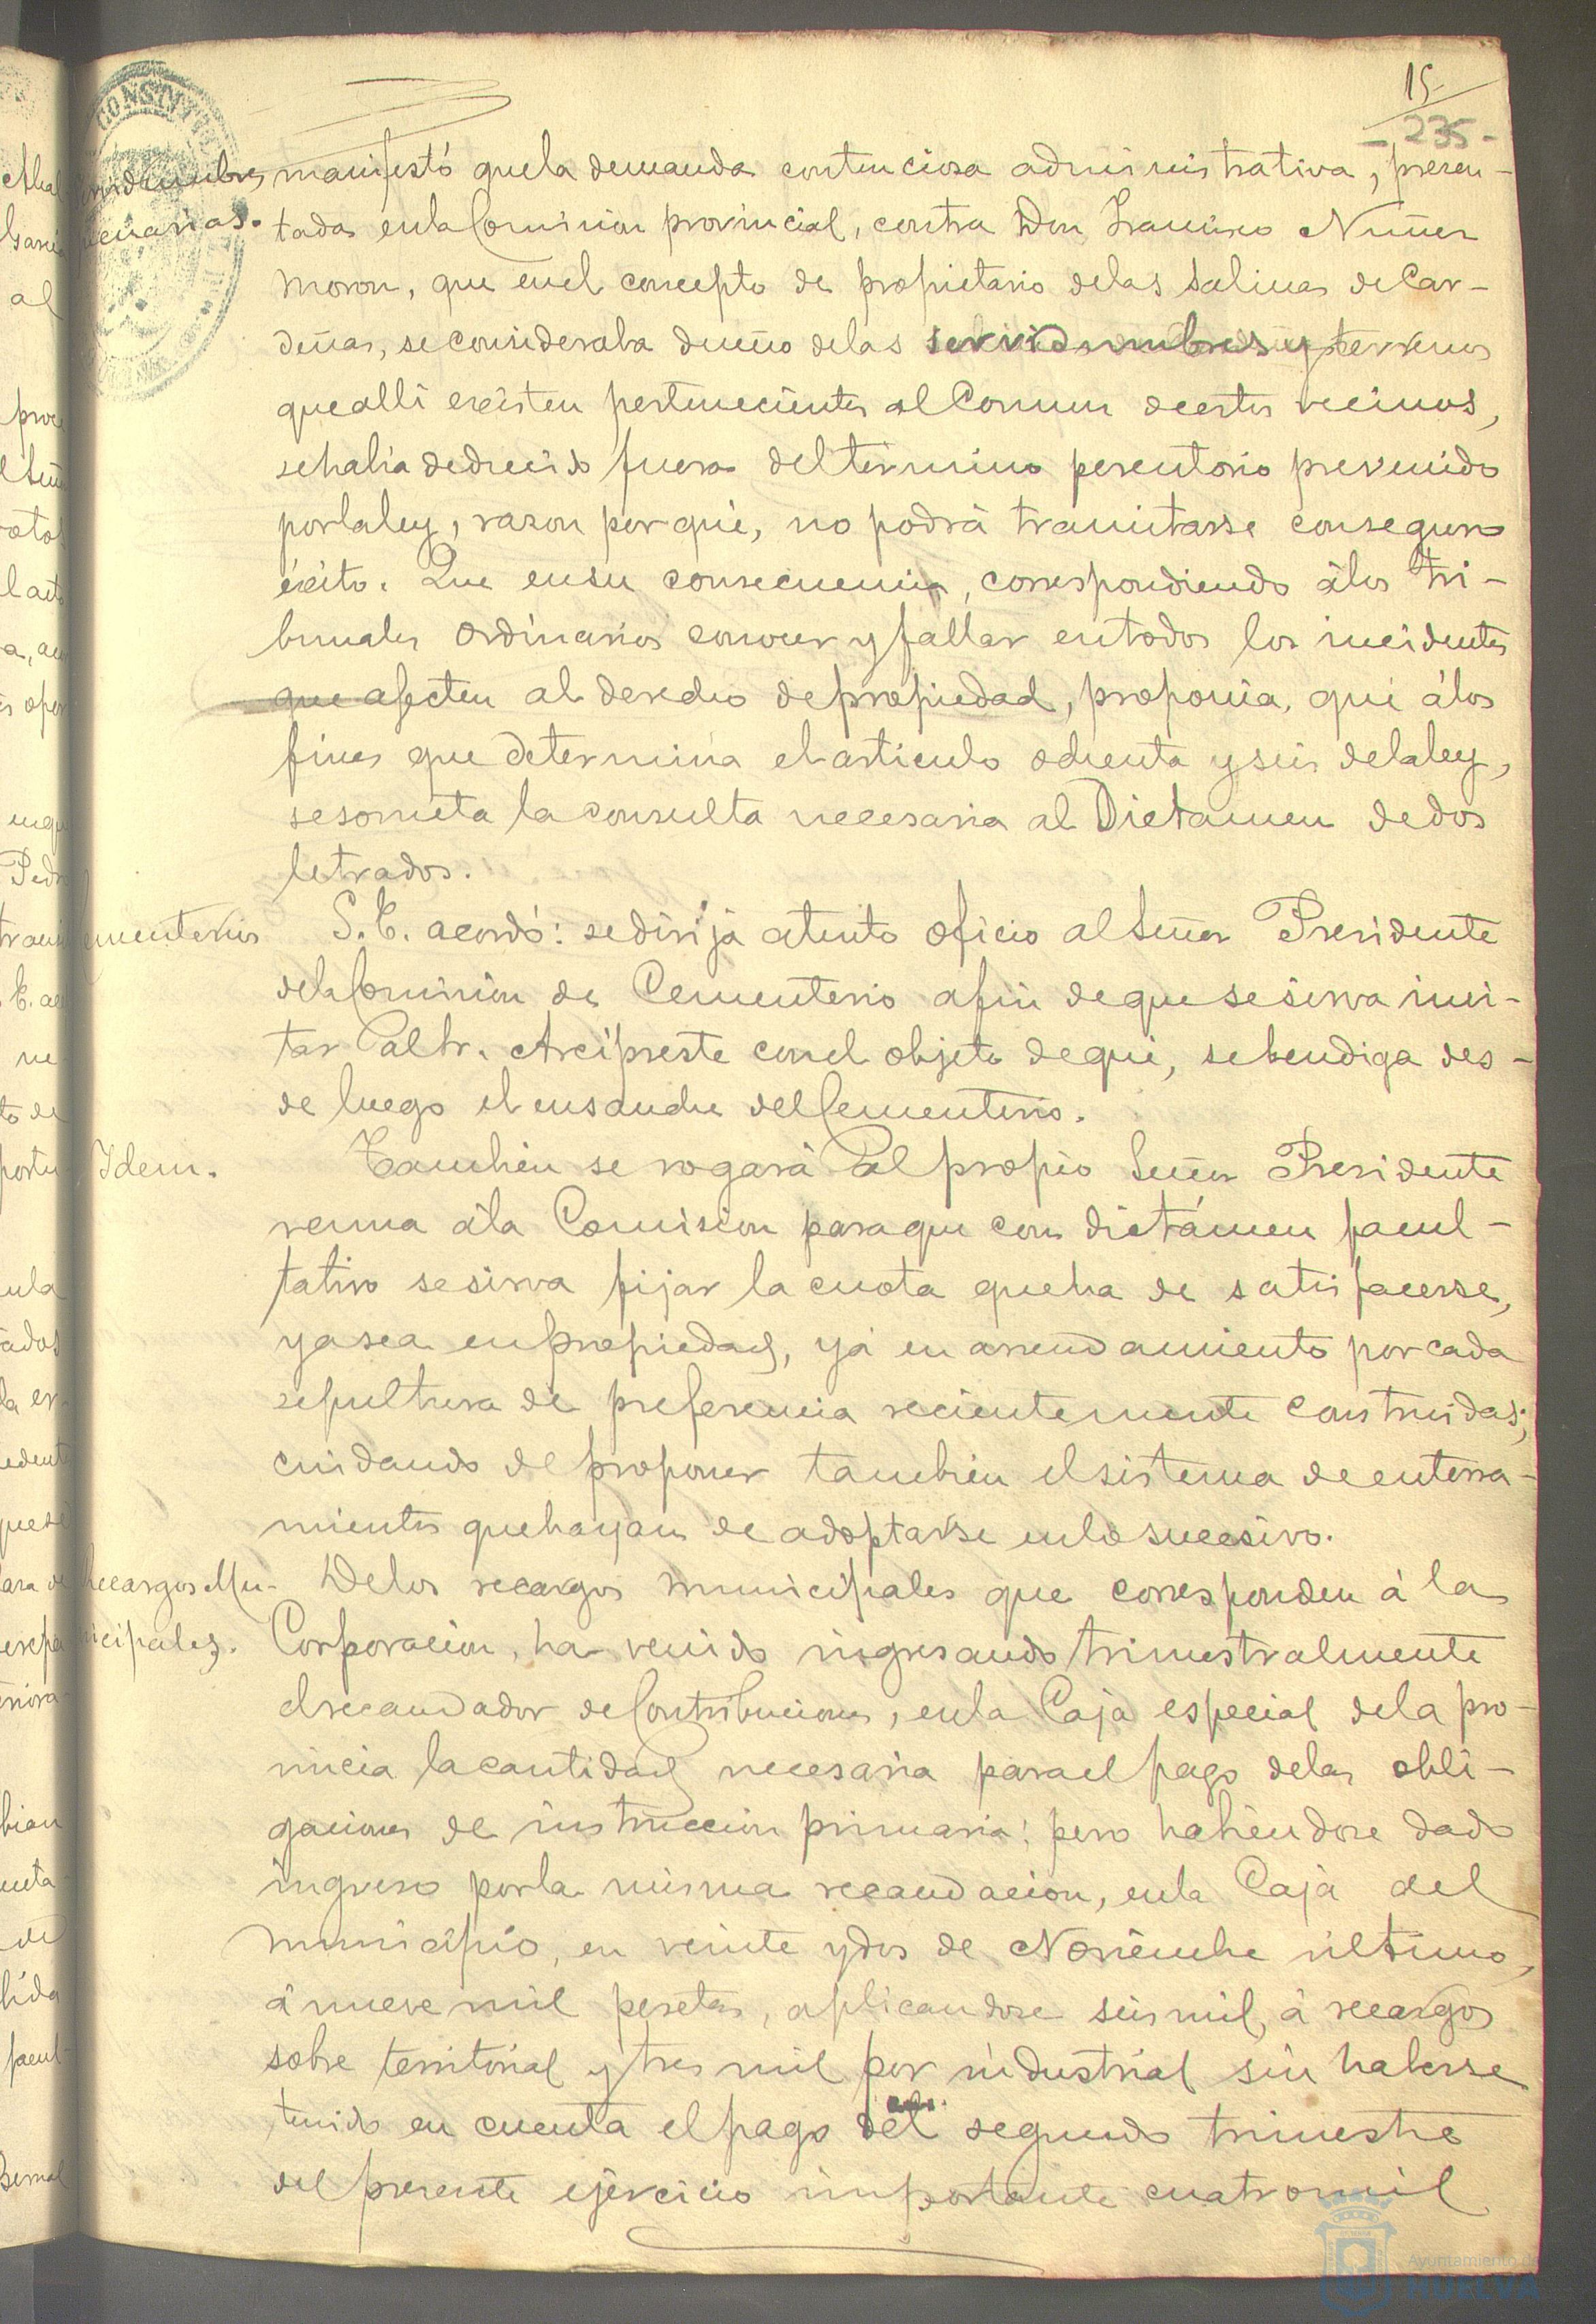 15
- 235 -
manifestó quela demanda contenciosa administrativa, presen-
tada enla Comision provincial, contra Don Francisco Nuñez
Moron, que enel concepto de propietario delas Salinas de Car-
deñas, se consideraba dueño delas servidumbres y terrenos
que allí existen pertenecientes al Comun de estos vecinos,
sehabia deducido fuera del termino perentorio prevenido
porlaley, razon por qué, no podrá tramitarse conseguro
éxito. Que ensu consecuencia, correspondiendo álos tri-
bunales ordinarios conocer y fallar entodos los incidentes
que afecten al derecho depropiedad, proponia, qué álos
fines que determina el articulo ochenta y seis delaley,
sesometa la consulta necesaria al Dictamen dedos
letrados.
ementerio
S. E. acordó: sedirija atento oficio al Señor Presidente
dela Comision de Cementerio afin deque sesirva invi-
tar al Sr. Arcipreste conel objeto dequé, sebendiga des-
de luego el ensanche del Cementerio.
Idem.
Tambien se rogará al propio Señor Presidente
reuna ála Comision paraque con dictámen facul-
tativo sesirva fijar la cuota queha de satisfacerse,
yasea enpropiedad, yá en arrendamiento por cada
sepultura de preferencia recientemente construidas;
cuidando de proponer tambien elsistema de enterra-
mientos quehayan de adoptarse enlo sucesivo.
Recargos Mu-
nicipales.
Delos recargos municipales que corresponden á la
Corporacion, ha venido ingresando trimestralmente
elrecaudador de Contribuciones, enla Caja especial dela pro-
vincia lacantidad necesaria parael pago delas obli-
gaciones de instruccion primaria: pero habiendose dado
ingreso porla misma recaudacion, enla Caja del
municipio, en veinte ydos de Noviembre último,
á nueve mil pesetas, aplicandose seis mil, á recargos
sobre territorial y tres mil por industrial sin haberse
tenido en cuenta elpago del segundo trimestre
del presente ejercicio importante cuatromil
Ayuntamiento de
HUELVA